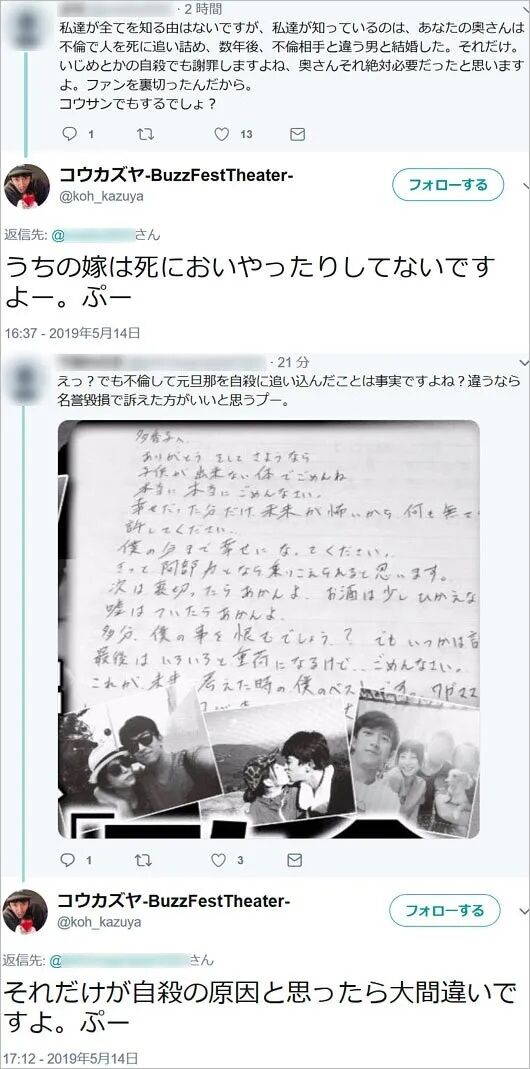 ・2 時間
私達が全てを知る由はないですが、私達が知っているのは、あなたの奥さんは
不倫で人を死に追い詰め、数年後、不倫相手と違う男と結婚した。それだけ。
いじめとかの自殺でも謝罪しますよね、奥さんそれ絶対必要だったと思います
よ。ファンを裏切ったんだから。
コウサンでもするでしょ？
1 13
コウカズヤ-BuzzFestTheater-
@koh_kazuya
フォローする
返信先: @ さん
うちの嫁は死においやったりしてないです
よー。ぷー
16:37 - 2019年5月14日
・21 分
えっ？でも不倫して元旦那を自殺に追い込んだことは事実ですよね？違うなら
名誉毀損で訴えた方がいいと思うプー。
多香子へ
ありがとう そして さようなら
子供が出来ない体でごめんね
本当に 本当に ごめんなさい。
幸せだった分だけ 未来が怖いから 何も無
許してください。
僕の分まで幸せになってください。
きっと 阿部 となら乗りこえられると思います。
次は裏切ったらあかんよ お酒は少しひかえな
嘘はついたらあかんよ
多分、僕の事を恨むでしょう？ でもいつかは
最後はいろいろと重荷になるけど ごめんなさい。
これが、未来 考えた時の、僕のベスト
1 3
コウカズヤ-BuzzFestTheater-
@koh_kazuya
フォローする
返信先: @ さん
それだけが自殺の原因と思ったら大間違いで
すよ。ぷー
17:12 - 2019年5月14日